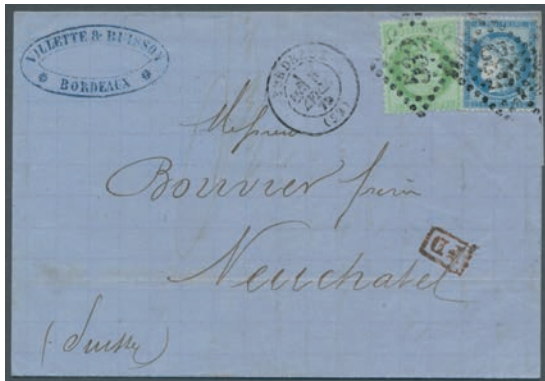 VILLETTE & BUISSON
BORDEAUX
BORDEAUX
(32)
5
532
Messieurs
Bouvier frères
Neuchatel
P.D.
(Suisse)